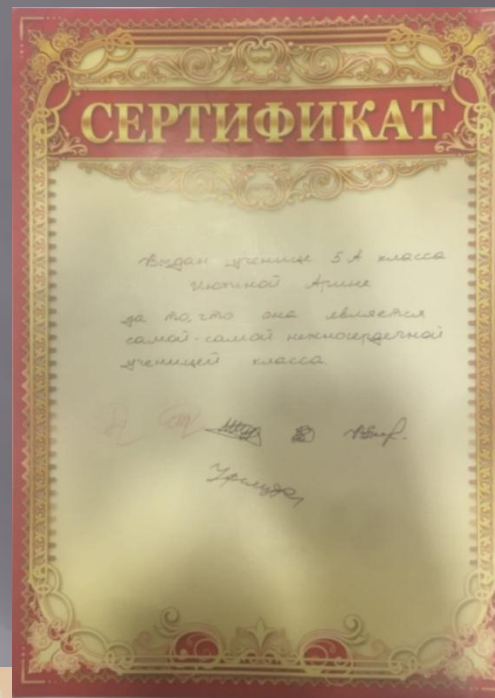 СЕРТИФИКАТ
Выдан ученице 5 А класса
Арине
за то, что она является
самой-самой нежносердечной
ученицей класса.